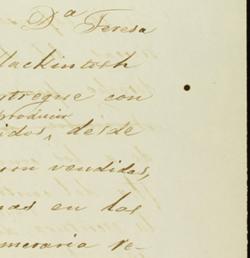 Dª Teresa
Mackintosh
ntregue con
producir
idos, desde
ron vendidas,
nas en las
meraria re-